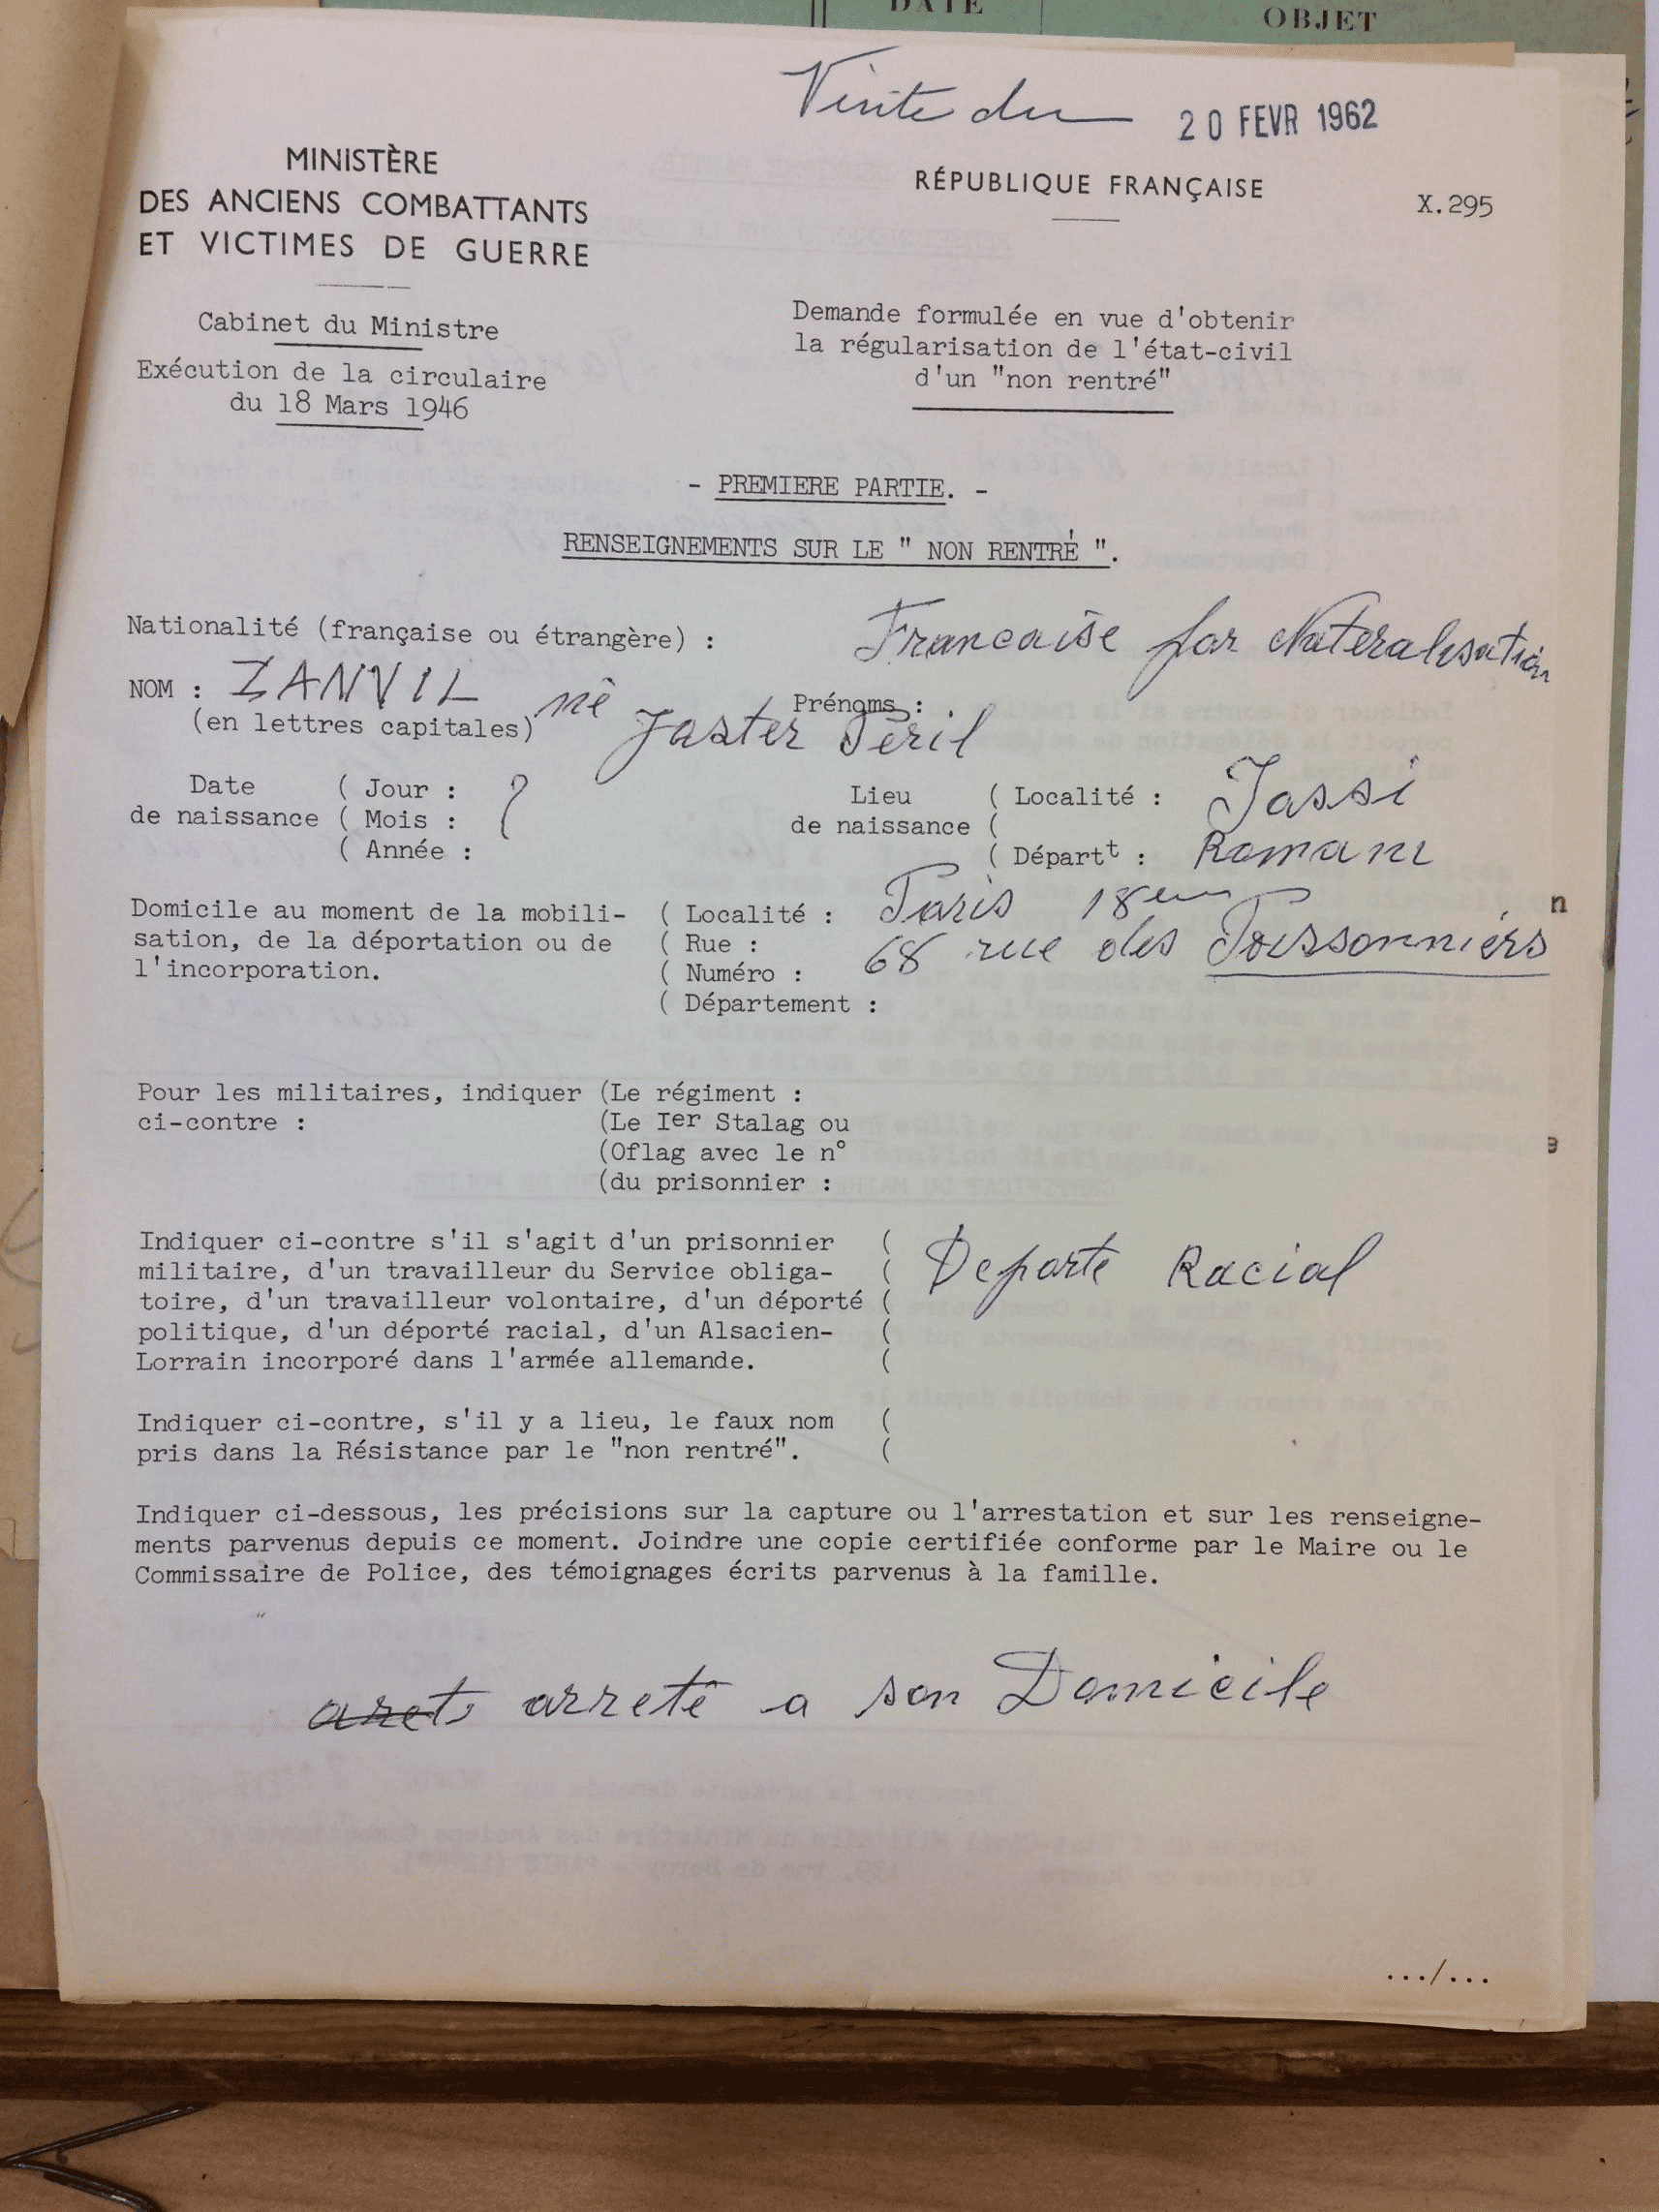 DATE
OBJET
Visite du 20 FEVR 1962
MINISTÈRE
DES ANCIENS COMBATTANTS
ET VICTIMES DE GUERRE
RÉPUBLIQUE FRANÇAISE
X.295
Cabinet du Ministre
Exécution de la circulaire
du 18 Mars 1946
Demande formulée en vue d'obtenir
la régularisation de l'état-civil
d'un "non rentré"
- PREMIERE PARTIE. -
RENSEIGNEMENTS SUR LE " NON RENTRÉ ".
Nationalité (française ou étrangère) : Francaise par Nateralisation
NOM : ZANVIL né
(en lettres capitales)
Prénoms :
Jaster Péril
Date de naissance ( Jour : ?
( Mois :
( Année :
Lieu de naissance ( Localité : Jassi
( Départt : Romani
Domicile au moment de la mobili-
sation, de la déportation ou de
l'incorporation.
( Localité : Paris 18eme
( Rue : 68 rue des Poissonniers
( Numéro :
( Département :
Pour les militaires, indiquer
ci-contre :
(Le régiment :
(Le Ier Stalag ou
(Oflag avec le n°
(du prisonnier :
Indiquer ci-contre s'il s'agit d'un prisonnier (
militaire, d'un travailleur du Service obliga- ( Deporté Racial
toire, d'un travailleur volontaire, d'un déporté (
politique, d'un déporté racial, d'un Alsacien- (
Lorrain incorporé dans l'armée allemande. (
Indiquer ci-contre, s'il y a lieu, le faux nom (
pris dans la Résistance par le "non rentré". (
Indiquer ci-dessous, les précisions sur la capture ou l'arrestation et sur les renseigne-
ments parvenus depuis ce moment. Joindre une copie certifiée conforme par le Maire ou le
Commissaire de Police, des témoignages écrits parvenus à la famille.
arreté a son Domicile
.../...